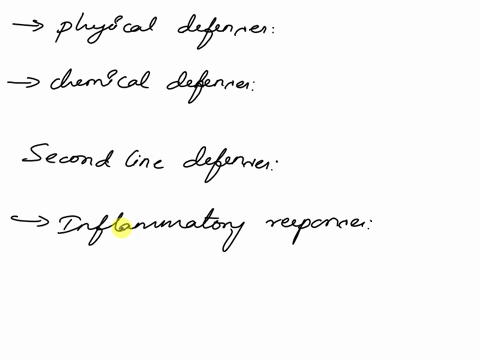 → physical defenses:
→ chemical defenses:
Second line defenses:
→ Inflammatory response: